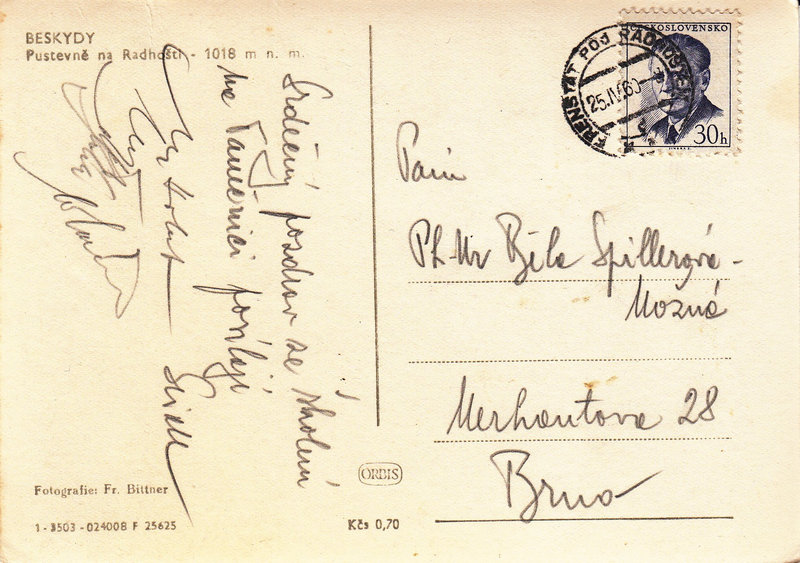 BESKYDY
Pustevně na Radhošti - 1018 m n. m.
ČESKOSLOVENSKO
30h
FRENŠTÁT POD RADHOŠTĚM
25.IV.60
Srdečný pozdrav ze školení
na Tanečnici posílají
Paní
PhMr Běla Spillerová-
Možná
Merhautova 28
Brno
Fotografie: Fr. Bittner
ORBIS
1-3503-024008 F 25625
Kčs 0,70